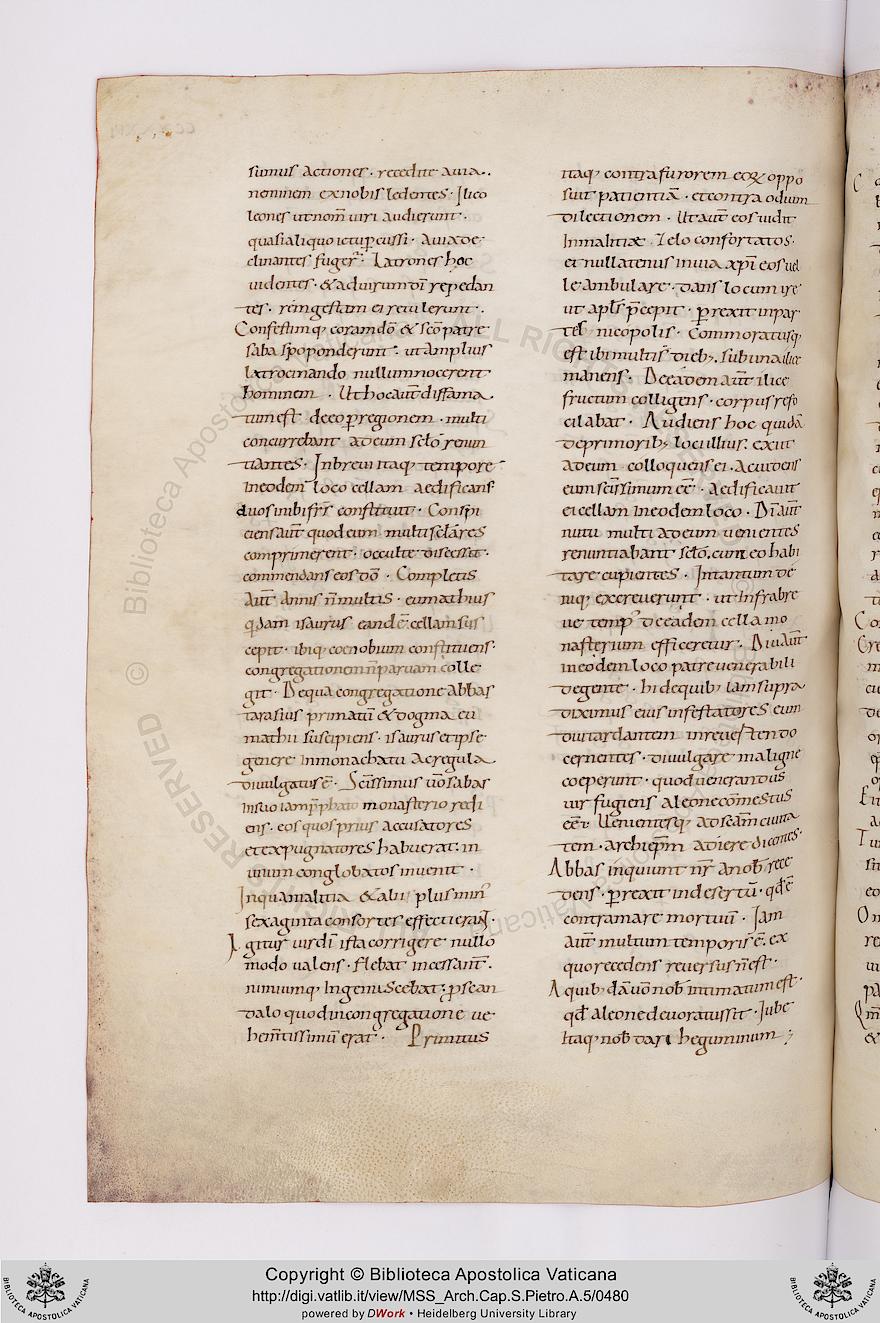 sumus actiones · recedite a uia ·
neminem ex nobis ledentes · Ilico
leones ut nom̄ uiri audierunt ·
quasi aliquo ictu ꝑcussi · a uia de
clinantes fuger̄ · Latrones hoc
uidentes · & ad uirum dī repedan
tes · rem gestam ei reuelerunt ·
Confestimq; coram dō & scō patre
saba spoponderunt · ut amplius
latrocinando nullum nocerent
hominem · Ut hoc aūt diffama
tum est deco ꝑ regionem · multi
concurrebant ad eum sclo renun
tiantes · In breui itaq; tempore
in eodem loco cellam aedificans
duos inibi fr̄s constituit · Conspi
ciens aūt quod eum multi sclares
comprimerent · occulte discessit ·
commendans eos dō · Completis
aūt annis n̄ multis · eumathius
qdam isaurus eandē cellam sus
cepit · ibiq; coenobium constituens ·
congregationem n̄ paruam colle
git · De qua congregatione abbas
tarasius primatū & dogma eu
mathii suscipiens · isaurus et ipse
genere in monachatu ac regula
diuulgatus ē · Scīssimus ūo sabas
in suo iam p̄phato monasterio redi
ens · eos quos prius accusatores
et expugnatores habuerat · in
unum conglobatos inuenit ·
In qua malitia & alii plus min
sexaginta consortes effecti erant ·
Igitur uir dī ista corrigere nullo
modo ualens · flebat incessant̄ ·
nimiumq; ingemiscebat · ꝓ scan
dalo quod in congregatione ue
hem̄tissimū erat · Primitus
itaq; contra furorem eoꝝ oppo
suit patientiā · et contra odium
dilectionem · Ut aūt eos uidit
in malitiae zelo confortatos ·
et nullatenus in uia xp̄i eos uel
le ambulare · dans locum ire
ut apl̄s p̄cepit · ꝑrexit in par
tes nicopolis · Commoratusq;
est ibi multis dieb; · sub una ilice
manens · De eadem aūt ilice
fructum colligens · corpus refo
cilabat · Audiens hoc quidā
de primorib; loci illius · exiit
ad eum colloquens ei · ac uidens
eum scīssimum eē · aedificauit
ei cellam in eodem loco · Dī aūt
nutu multi ad eum uenientes
renuntiabant sclo, cum eo habi
tare cupientes · In tantum de
niq; excreuerunt · ut infra bre
ue temp' de eadem cella mo
nasterium efficeretur · Diu aūt
in eodem loco patre uenerabili
degente · hi de quib; iam supra
diximus eius infestatores eum
diu tardantem in reuertendo
cernentes · diuulgare maligne
coeperunt · quod uenerandus
uir fugiens a leone comestus
eēt · Uenientesq; ad scām ciuita
tem · archiep̄m adiere dicentes ·
Abbas inquiunt nr̄ a nob rece
dens · ꝑrexit in desertū · qd ē
contra mare mortuū · Iam
aūt multum temporis ē · ex
quo recedens reuersus n̄ est ·
A quib;dā uō nob intimatum est ·
qd a leone deuoratus sit · Iube
itaq; nob dari hegumenum ;
Copyright © Biblioteca Apostolica Vaticana
http://digi.vatlib.it/view/MSS_Arch.Cap.S.Pietro.A.5/0480
powered by DWork • Heidelberg University Library